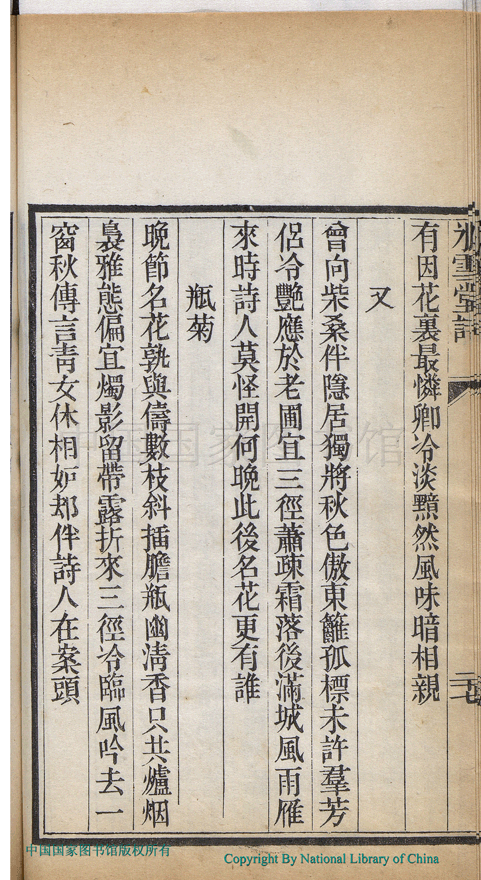 冰雪堂詩
有因花裏最憐卿冷淡黯然風味暗相親
又
曾向柴桑伴隱居獨將秋色傲東籬孤標未許羣芳
侶冷艷應於老圃宜三徑蕭疎霜落後滿城風雨雁
來時詩人莫怪開何晚此後名花更有誰
瓶菊
晚節名花孰與儔數枝斜插膽瓶幽清香只共爐烟
裊雅態偏宜燭影留帶露折來三徑冷臨風吟去一
窗秋傳言靑女休相妒却伴詩人在案頭
中国国家图书馆
中国国家图书馆版权所有
Copyright By National Library of China